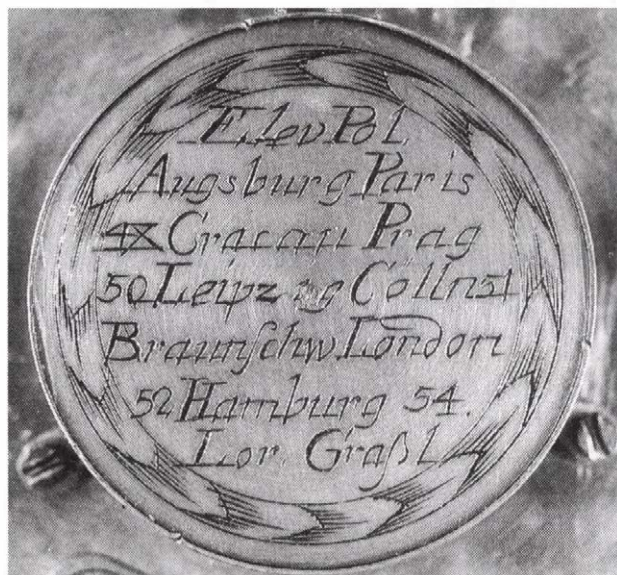 Elev Pol
Augsburg Paris
48 Cracau Prag
50 Leipzig Cölln 51
Braunschw. London
52 Hamburg 54.
Lor. Graßl